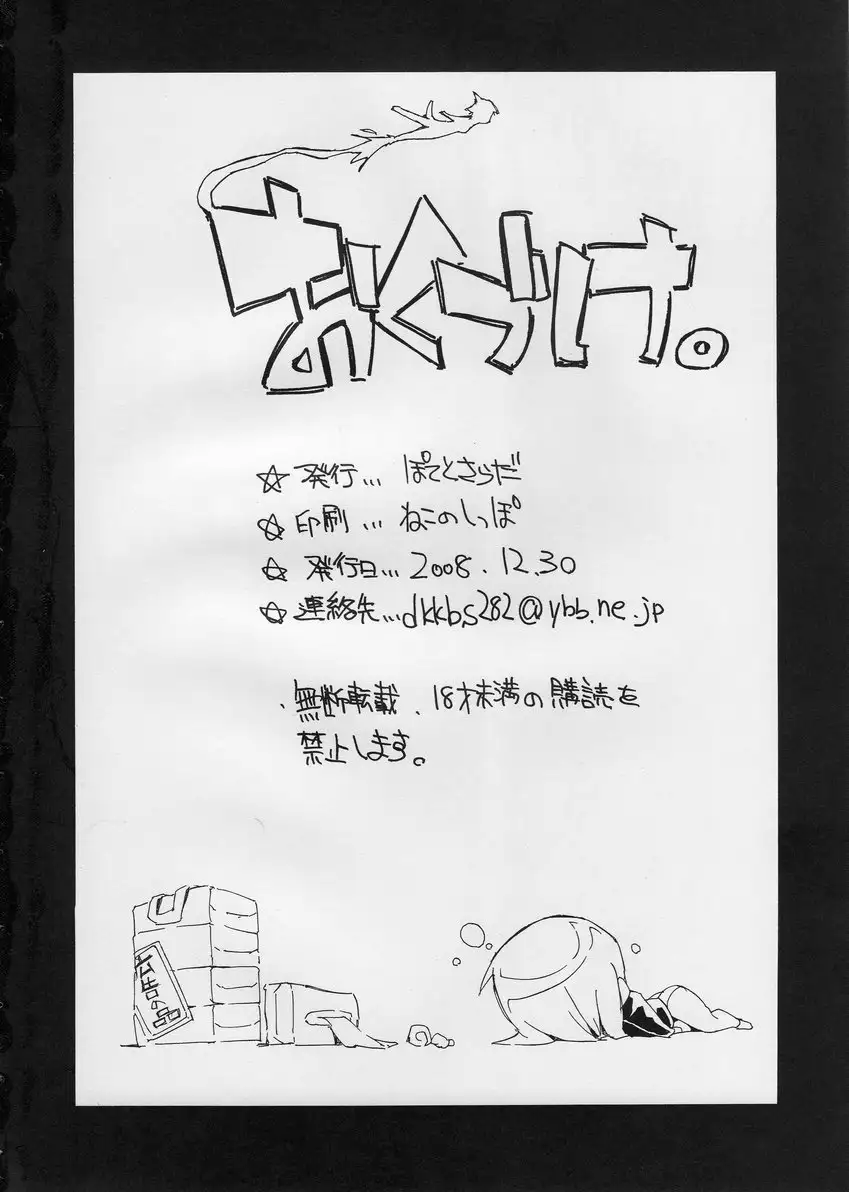 おくづけ。
☆発行… ぽてとさらだ
☆印刷… ねこのしっぽ
☆発行日… 2008.12.30
☆連絡先…dkkbs282@ybb.ne.jp
・無断転載、18才未満の購読を
禁止します。
広告の品